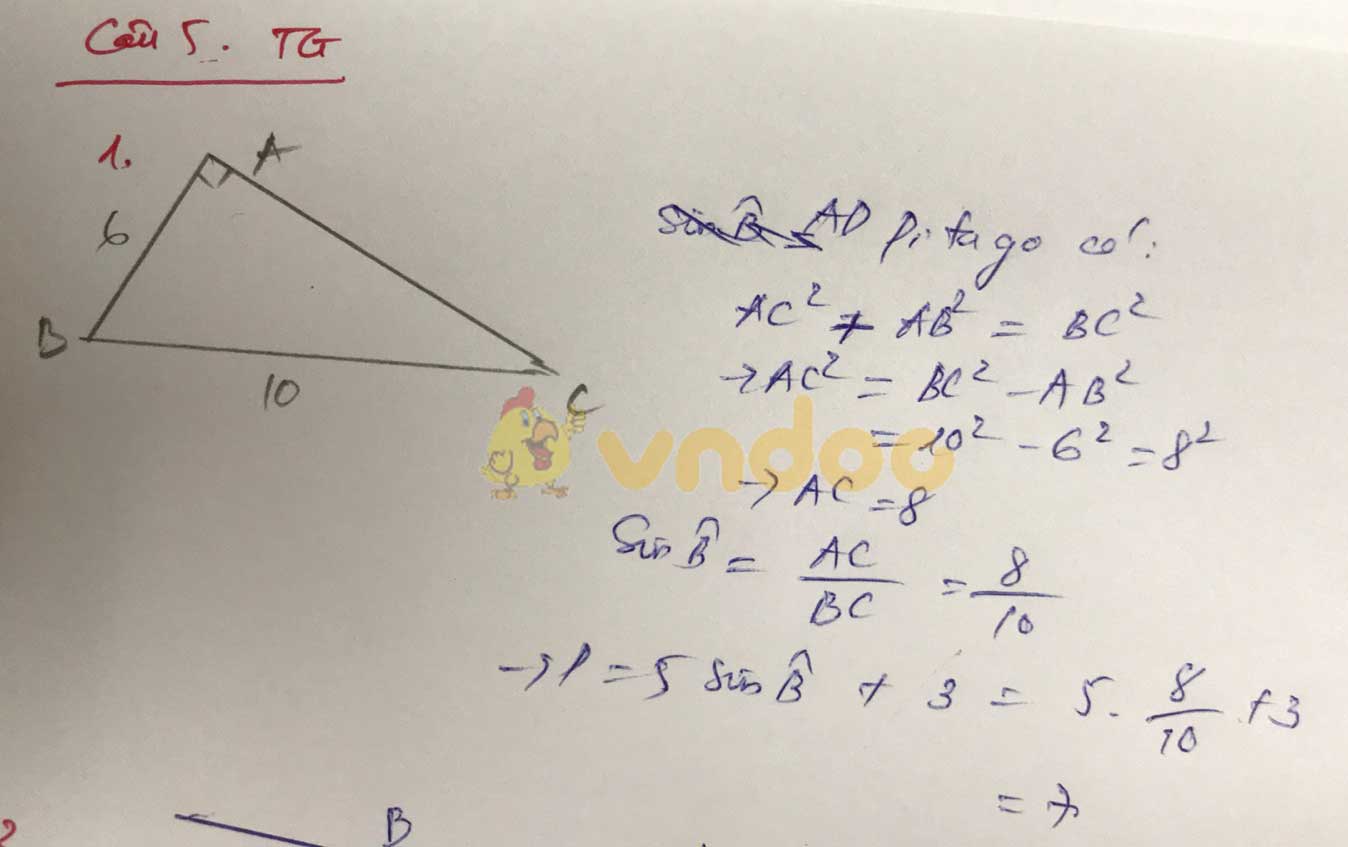 Câu 5. TG
1.
A
6
B
10
C
sin B̂ = AD Pitago có:
AC² + AB² = BC²
→ AC² = BC² - AB²
= 10² - 6² = 8²
→ AC = 8
vndoo
Sin B̂ = AC/BC = 8/10
→ P = 5 sin B̂ + 3 = 5. 8/10 + 3
= 7
2
B